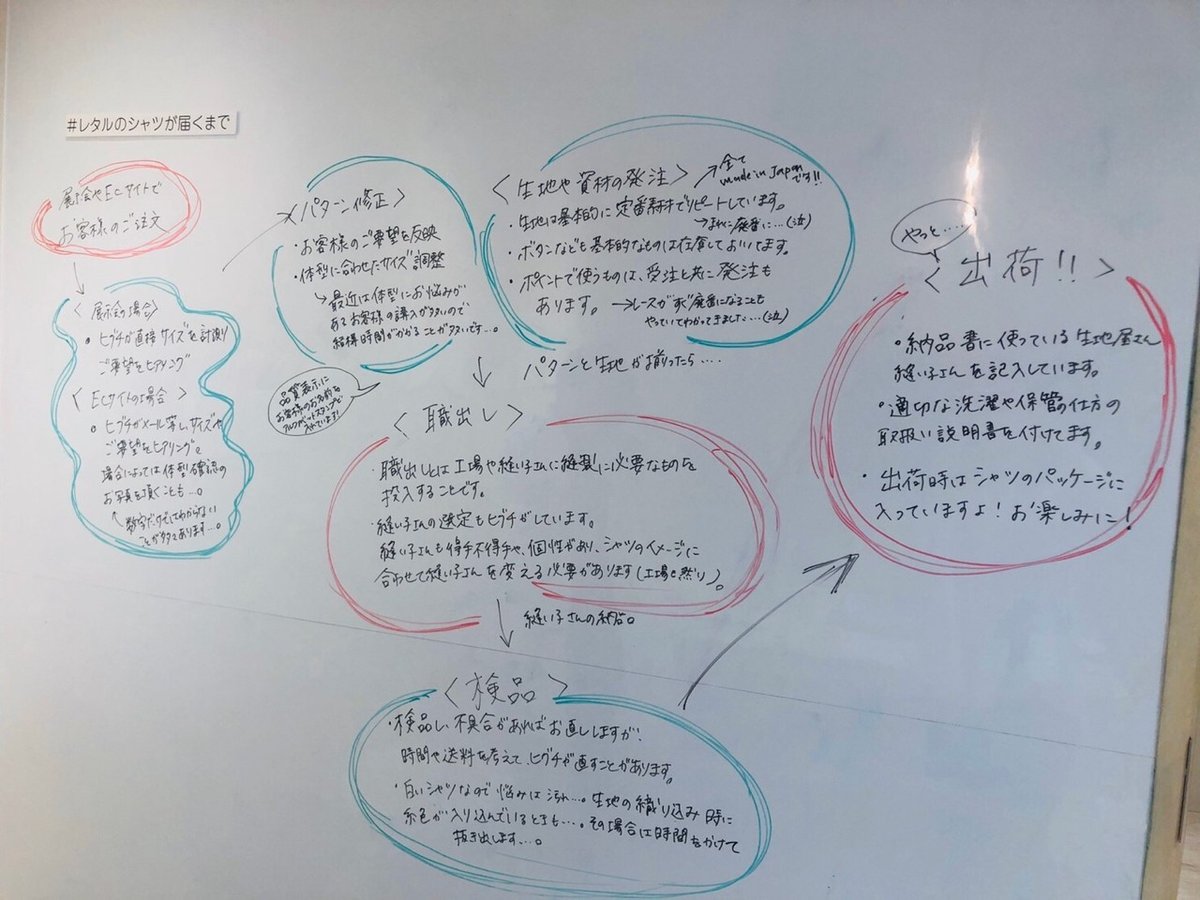 #レタルのシャツが届くまで
展示会やECサイトで
お客様のご注文
〈展示会の場合〉
・ヒグチが直接サイズを計測り
ご要望をヒアリング
〈ECサイトの場合〉
・ヒグチがメール等し、サイズや
ご要望をヒアリング。
場合によっては体型確認の
お写真を頂くことも…。
数字だけではわからない
ことが多々あります…。
〈パターン修正〉
・お客様のご要望を反映
・体型に合わせたサイズ調整
最近は体型にお悩みが
あるお客様の購入が多いので
結構時間がかかることが多いです…。
品質表示に
お客様のお名前を
アルファベットスタンプで
入れています!
〈生地や資材の発注〉
全て
made in Japan
です!!
・生地は基本的に定番素材でリピートしています。
→まれに廃番に…(泣)
・ボタンなども基本的なものは在庫しておいてます。
・ポイントで使うものは、受注と共に発注も
あります。→レースがすぐ廃番になることも
やっていてわかってきました…(泣)
パターンと生地が揃ったら……
〈職出し〉
・職出しとは工場や縫い子さんに縫製に必要なものを
投入することです。
・縫い子さんの選定もヒグチがしています。
縫い子さんも得手不得手や、個性があり、シャツのイメージに
合わせて縫い子さんを変える必要があります(工場も然り)。
縫い子さんの納品。
〈検品〉
・検品し、不具合があればお直ししますが、
時間や送料を考えて、ヒグチが直すことがあります。
・白いシャツなので悩みは汚れ…。生地の織り込み時に
糸色が入り込んでいるときも…。その場合は時間をかけて
抜き出します…。
やっと……
〈出荷!!〉
・納品書に使っている生地屋さん
縫い子さんを記入しています。
・適切な洗濯や保管の仕方の
取扱い説明書を付けてます。
・出荷時はシャツのパッケージに
入っていますよ!お楽しみに!